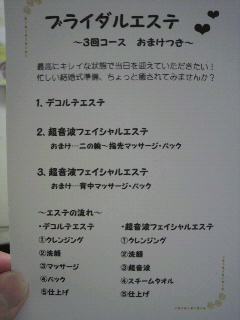 ブライダルエステ
～3回コース おまけつき～
最高にキレイな状態で当日を迎えていただきたい！
忙しい結婚式準備、ちょっと癒されてみませんか？
1. デコルテエステ
2. 超音波フェイシャルエステ
おまけ…二の腕～指先マッサージ・パック
3. 超音波フェイシャルエステ
おまけ…背中マッサージ・パック
～エステの流れ～
・デコルテエステ
①クレンジング
②洗顔
③マッサージ
④パック
⑤仕上げ
・超音波フェイシャルエステ
①クレンジング
②洗顔
③超音波
④スチームタオル
⑤仕上げ